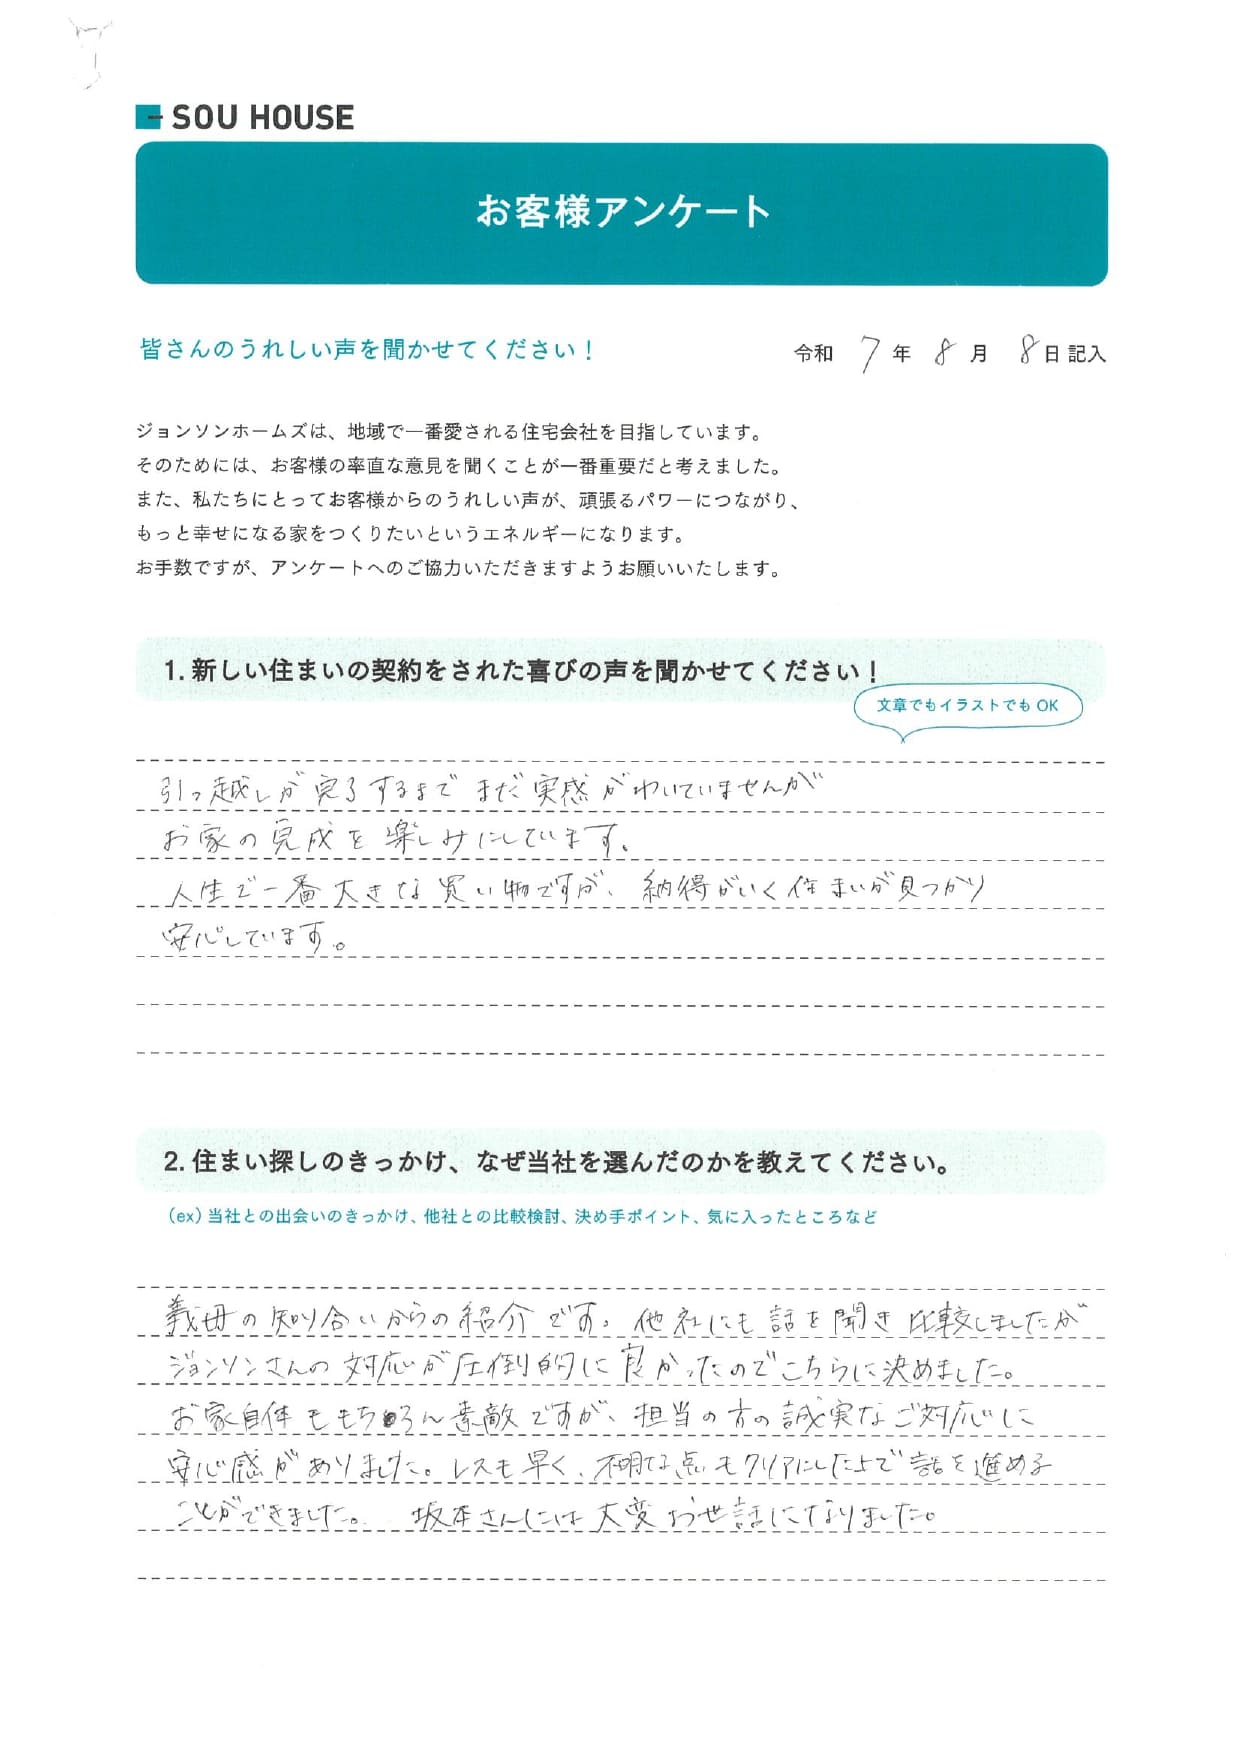 SOU HOUSE
お客様アンケート
皆さんのうれしい声を聞かせてください！
令和 7年 8月 8日 記入
ジョンソンホームズは、地域で一番愛される住宅会社を目指しています。
そのためには、お客様の率直な意見を聞くことが一番重要だと考えました。
また、私たちにとってお客様からのうれしい声が、頑張るパワーにつながり、
もっと幸せになる家をつくりたいというエネルギーになります。
お手数ですが、アンケートへのご協力いただきますようお願いいたします。
1. 新しい住まいの契約をされた喜びの声を聞かせてください！
文章でもイラストでもOK
引っ越しが完了するまでまだ実感がわいていませんが
お家の完成を楽しみにしています。
人生で一番大きな買い物ですが、納得がいく住まいが見つかり
安心しています。
2. 住まい探しのきっかけ、なぜ当社を選んだのかを教えてください。
（ex）当社との出会いのきっかけ、他社との比較検討、決め手ポイント、気に入ったところなど
義母の知り合いからの紹介です。他社にも話を聞き比較しましたが
ジョンソンさんの対応が圧倒的に良かったのでこちらに決めました。
お家自体ももちろん素敵ですが、担当の方の誠実なご対応に
安心感がありました。レスも早く、不明な点もクリアにした上で話を進める
ことができました。 坂本さんには大変お世話になりました。